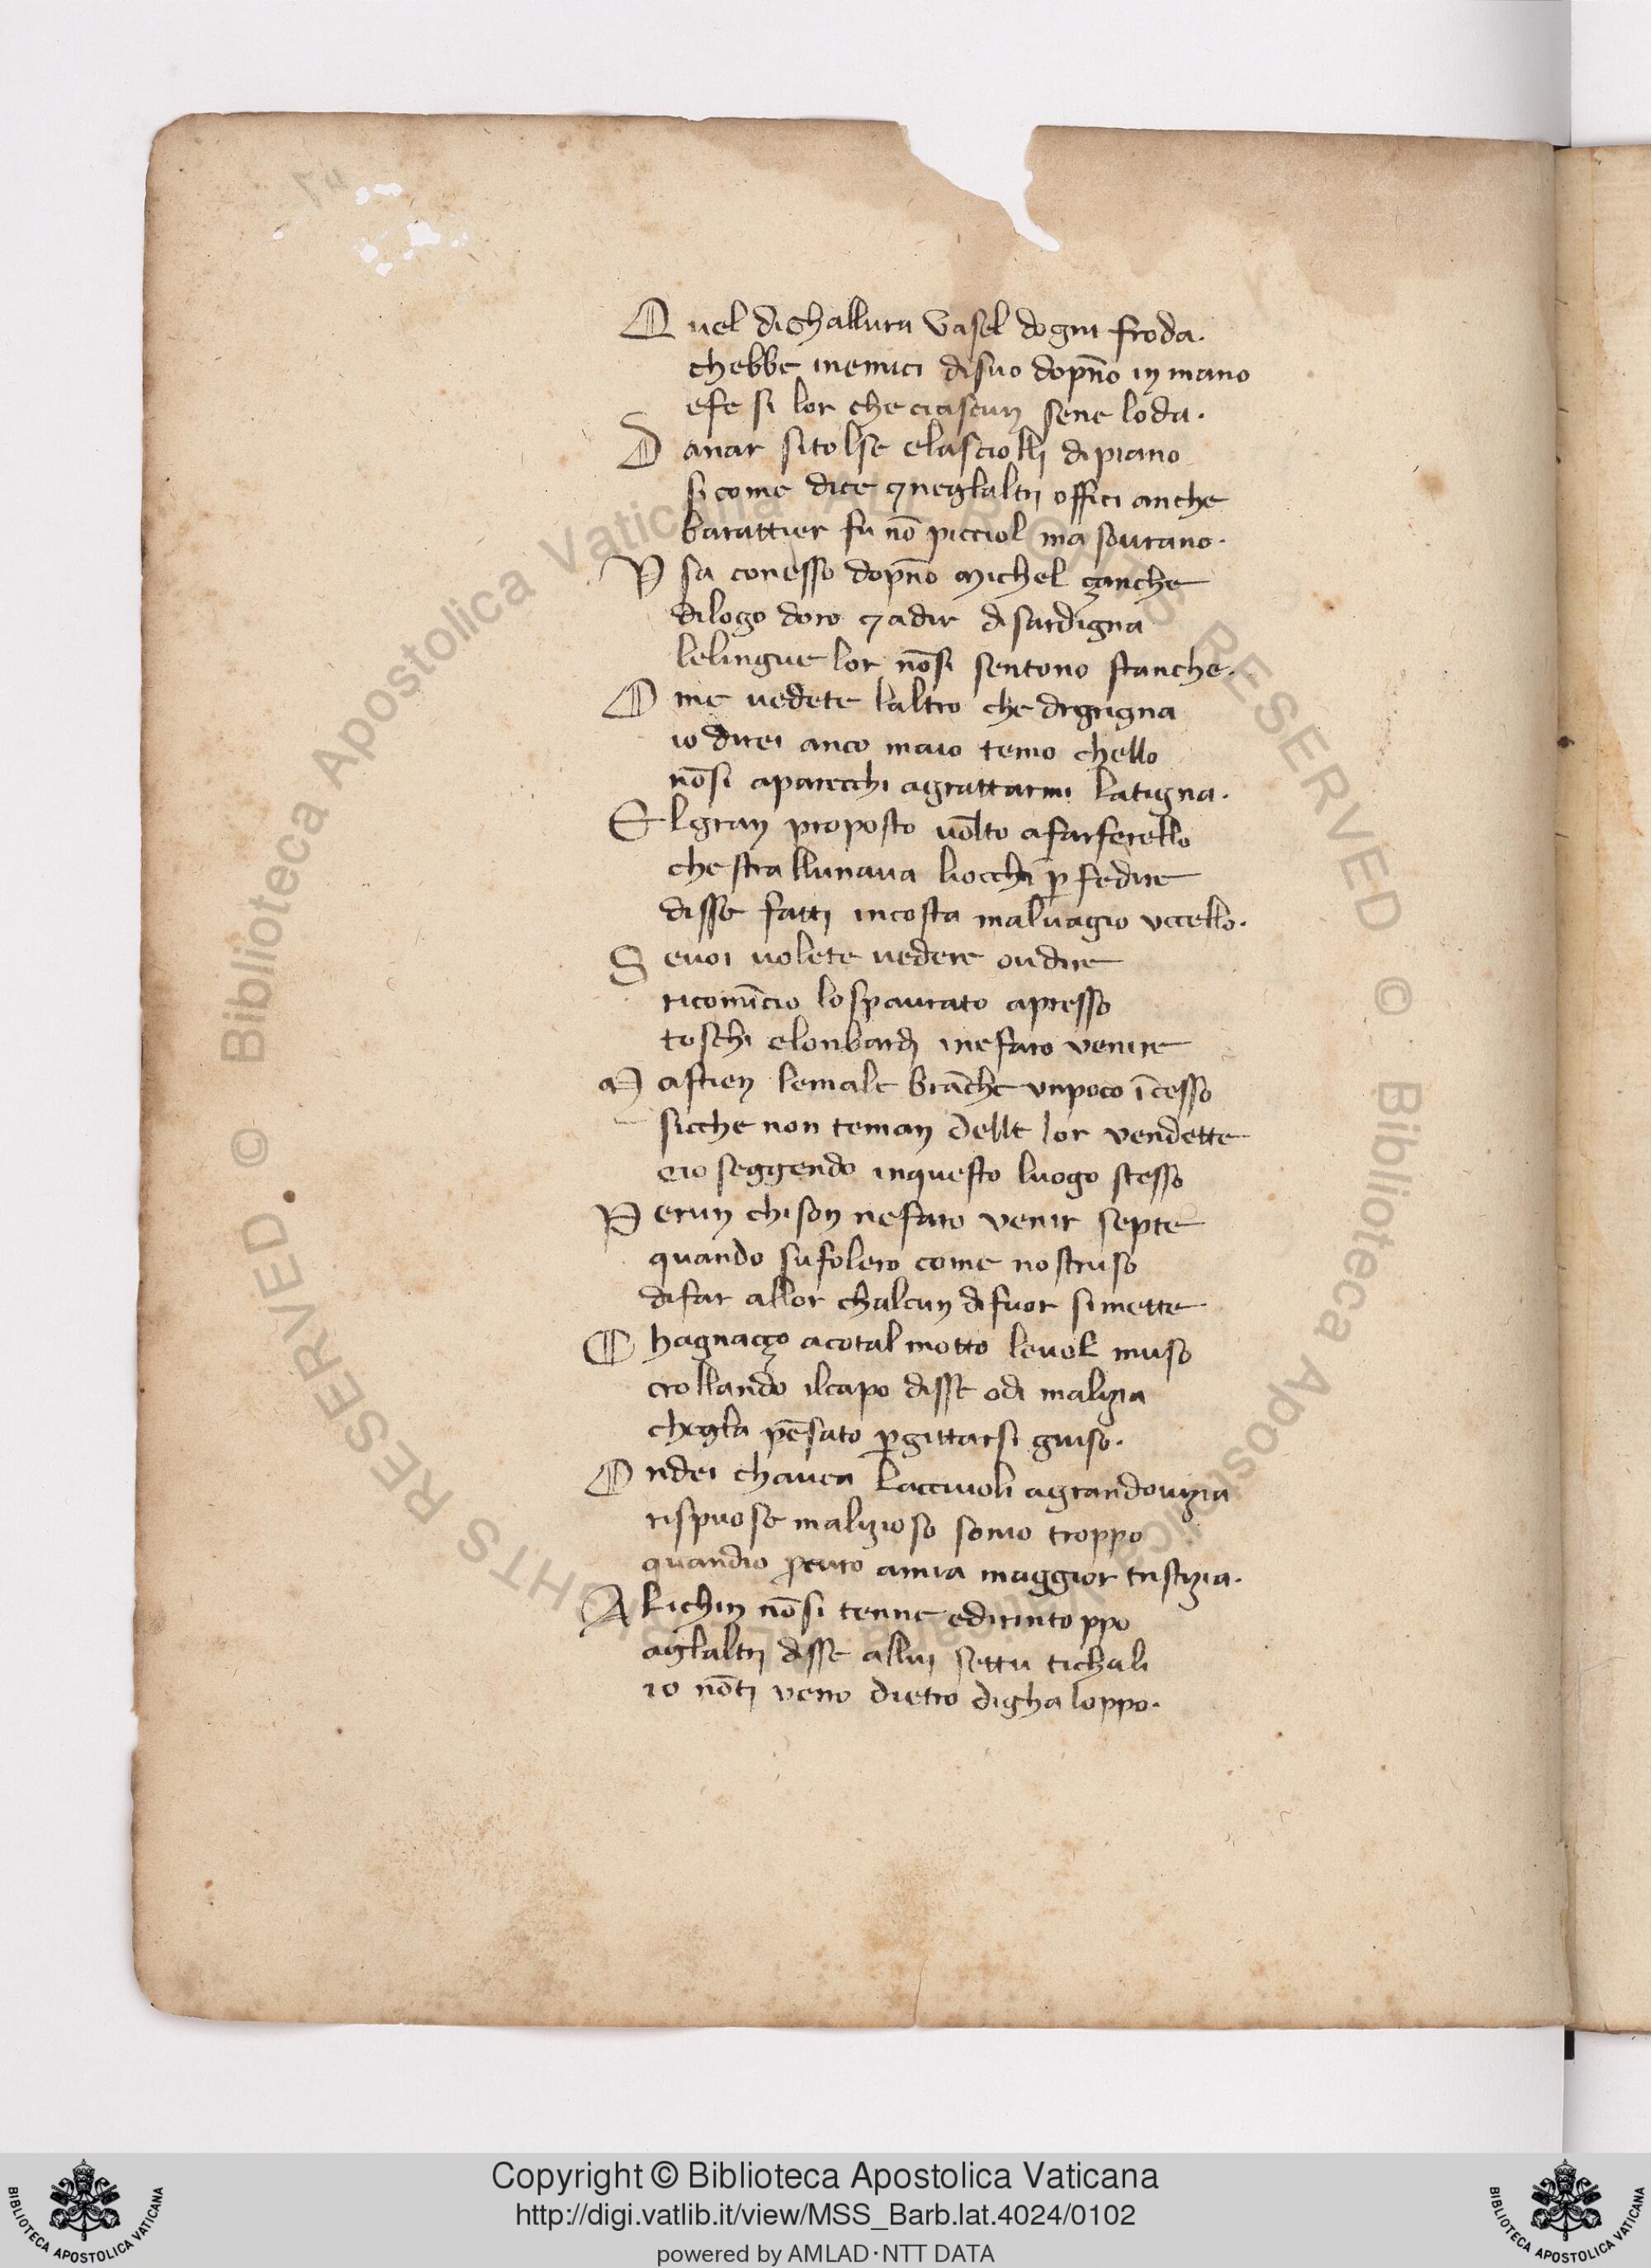 Quel dighallura vasel dogni froda.
chebbe inemici disuo dopno in mano
efe si lor che ciascun sene loda.
Danar sitolse elasciolli dipiano
sicome dice ⁊ neglaltri offici anche
barattier fu nō picciol ma sourano.
Vsa conesso dopno Michel çanche
dilogo doro ⁊ adir disardigna
lelingue lor nōsi sentono stanche.
Ome uedete laltro che digrigna
io direi anco maio temo chello
nōsi aparecchi agrattarmi latigna.
Elgran proposto uolto afarferello
che stralunaua liocchi ꝑ fedire
disse fatti incosta maluagio vccello.
Seuoi uolete uedere oudire
ricomīcio lospaurato apresso
toschi elonbardi inefaro venire
Mastien lemale brāche vnpoco īcesso
sicche non teman delle lor vendette
eio seggendo inquesto luogo stesso
Perun chison nefaro venir septe
quando sufolero come nostruso
difar allor chalcun difuor simette
Chagnaçço acotal motto leuol muso
crollando ilcapo disse odi malizia
chegla pēsato ꝑgittarsi giuso.
Ondei chauea lacciuoli agrandouizia
rispuose malizioso sonio troppo
quandio ꝓcuro amia maggior tristizia.
Alichin nōsi tenne edirintoppo
aglaltri disse allui settu tichali
io nōti verro dietro dighaloppo.
Copyright © Biblioteca Apostolica Vaticana
http://digi.vatlib.it/view/MSS_Barb.lat.4024/0102
powered by AMLAD·NTT DATA
BIBLIOTECA APOSTOLICA VATICANA
BIBLIOTECA APOSTOLICA VATICANA
© Biblioteca Apostolica Vaticana ALL RIGHTS RESERVED
© Biblioteca Apostolica Vaticana ALL RIGHTS RESERVED